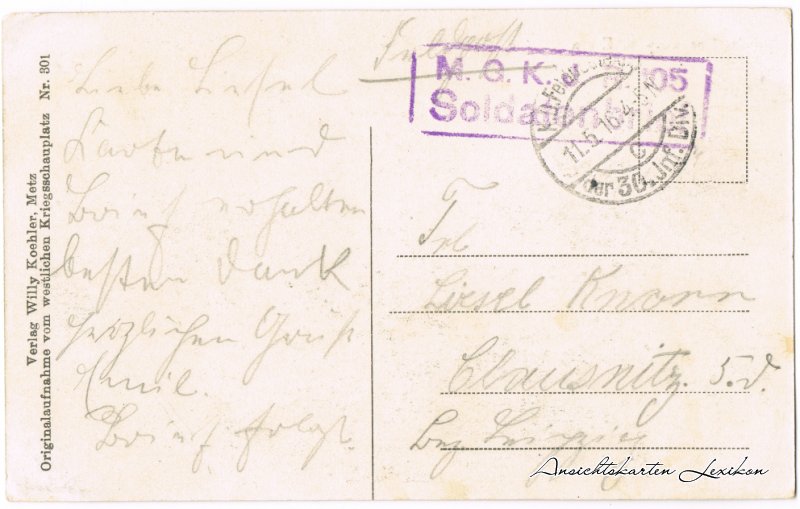 Verlag Willy Koehler, Metz
Originalaufnahme vom westlichen Kriegsschauplatz Nr. 301
Feldpost
M. G. K. 105
Soldatenbrief
11.5.16. 4-5 N
c
der 30. Inf. Div.
Liebe Liesel
Karte und
Brief erhalten
besten Dank
herzlichen Gruß
Emil.
Brief folgt.
Frl
Liesel Knorr
Clausnitz. 5. d.
Bez Leipzig
Ansichtskarten Lexikon